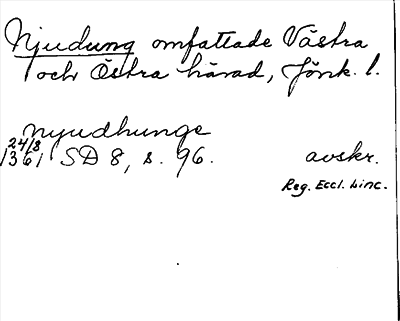 Njudung omfattade Västra
och Östra härad, Jönk. l.
nyudhunge
24/8
1361 SD 8, s. 96. avskr.
Reg. Eccl. Linc.